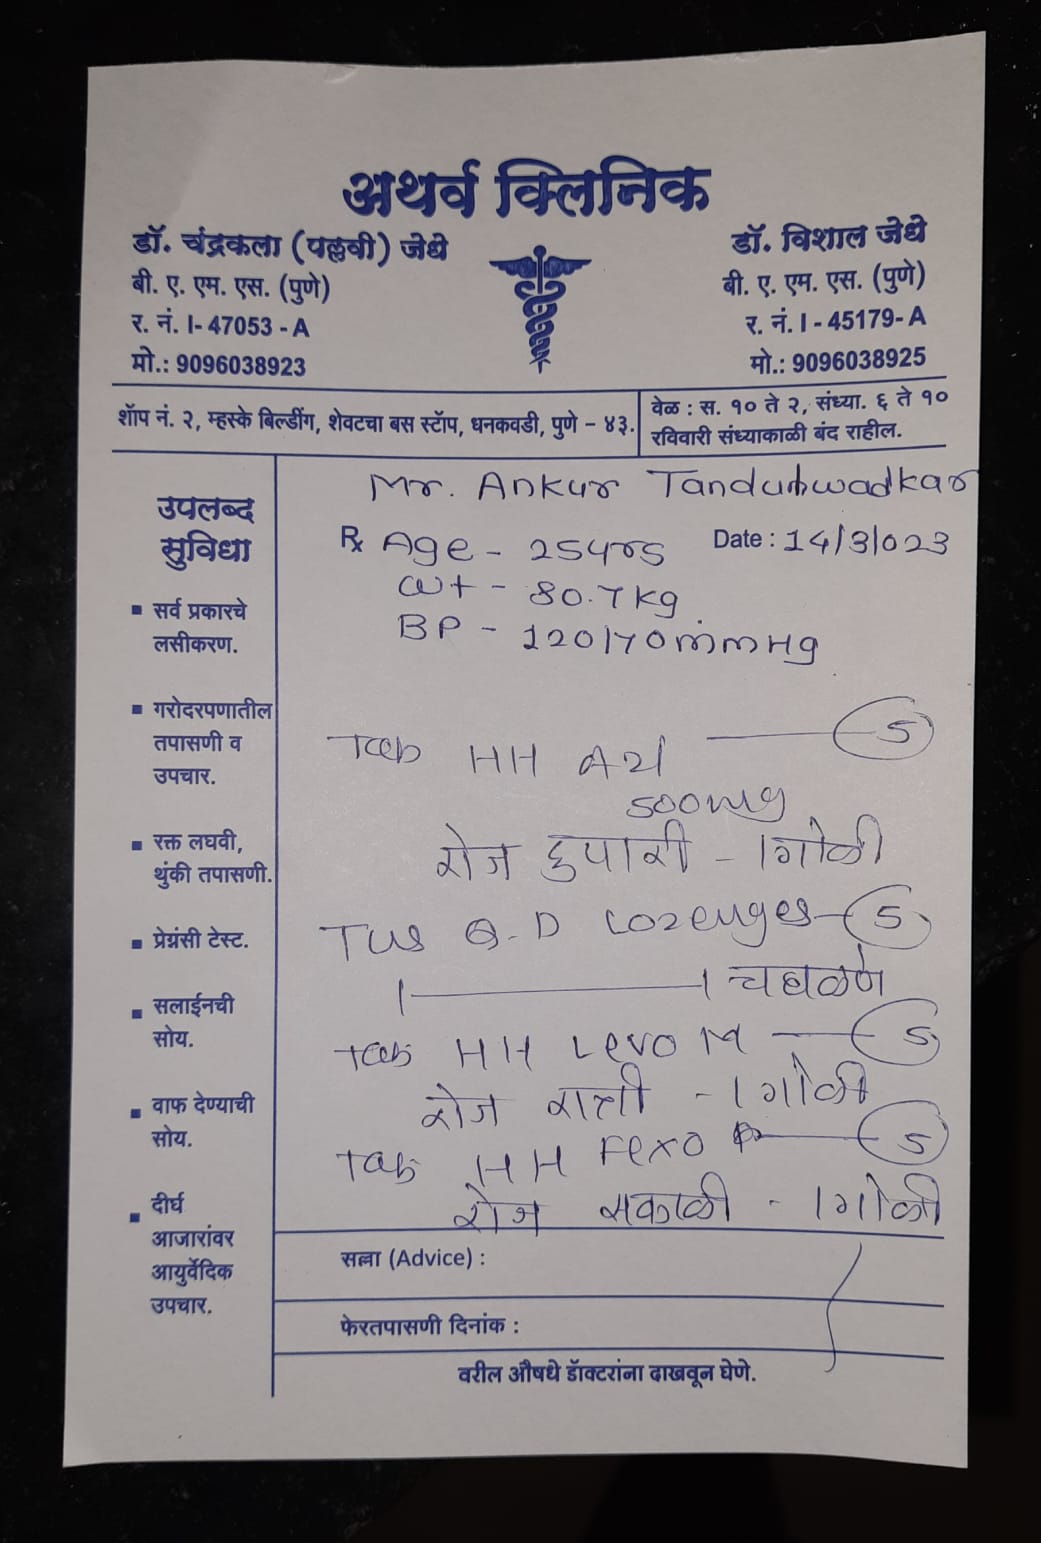 अथर्व क्लिनिक
डॉ. चंद्रकला (पल्लवी) जेधे
बी. ए. एम. एस. (पुणे)
र. नं. I- 47053 - A
मो.: 9096038923
डॉ. विशाल जेधे
बी. ए. एम. एस. (पुणे)
र. नं. I - 45179- A
मो.: 9096038925
शॉप नं. २, म्हस्के बिल्डींग, शेवटचा बस स्टॉप, धनकवडी, पुणे - ४३.
वेळ : स. १० ते २, संध्या. ६ ते १०
रविवारी संध्याकाळी बंद राहील.
उपलब्द
सुविधा
▪ सर्व प्रकारचे
लसीकरण.
▪ गरोदरपणातील
तपासणी व
उपचार.
▪ रक्त लघवी,
थुंकी तपासणी.
▪ प्रेग्नंसी टेस्ट.
▪ सलाईनची
सोय.
▪ वाफ देण्याची
सोय.
▪ दीर्घ
आजारांवर
आयुर्वेदिक
उपचार.
Mr. Ankur
Rx Age - 25yrs Date : 14/3/023
wt - 80.7kg
BP - 120/70mmHg
Tab HH AZI — 5
500mg
रोज दुपारी - 1 गोळी
TUS Q-D Lozenges - 5
चघळणे
Tab HH Levo M — 5
रोज रात्री - 1 गोळी
Tab HH Fexo — 5
रोज सकाळी - 1 गोळी
सल्ला (Advice) :
फेरतपासणी दिनांक :
वरील औषधे डॉक्टरांना दाखवून घेणे.